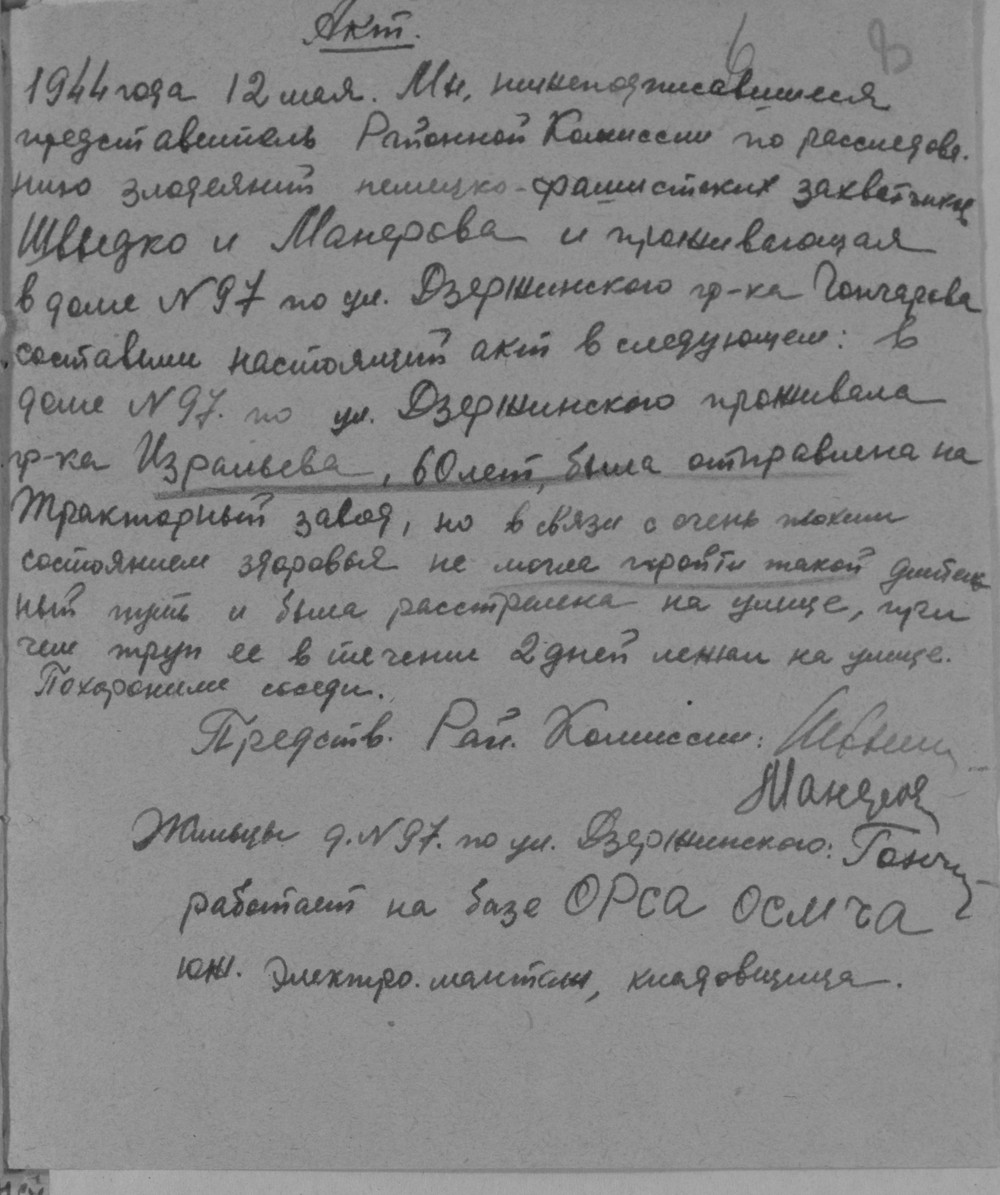 Акт.
1944 года 12 мая. Мы, нижеподписавшиеся
представитель Районной Комиссии по расследова-
нию злодеяний немецко-фашистских захватчиков
Швыдко и Манерова и проживающая
в доме N 97 по ул. Дзержинского гр-ка Гончарова
составили настоящий акт в следующем: в
доме N 97. по ул. Дзержинского проживала
гр-ка Изральева, 60 лет, была отправлена на
Тракторный завод, но в связи с очень плохим
состоянием здоровья не могла пройти такой длитель
ный путь и была расстрелена на улице, при
чем труп ее в течении 2 дней лежал на улице.
Похоронили соседи.
Предств. Рай. Комиссии:
Жильцы д. N 97. по ул. Дзержинского: Гонч
работает на базе ОРСа ОСМЧа
юж. электро. монтаж, кладовщица.